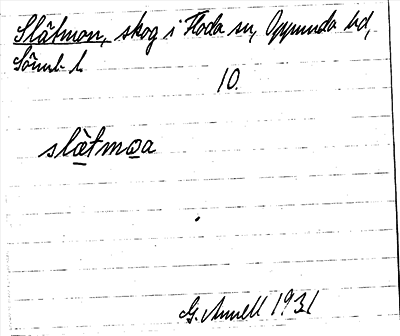 Slätmon, skog i Floda sn, Oppunda hd,
Söml. l.
10.
slätmoa
G. Annell 1931